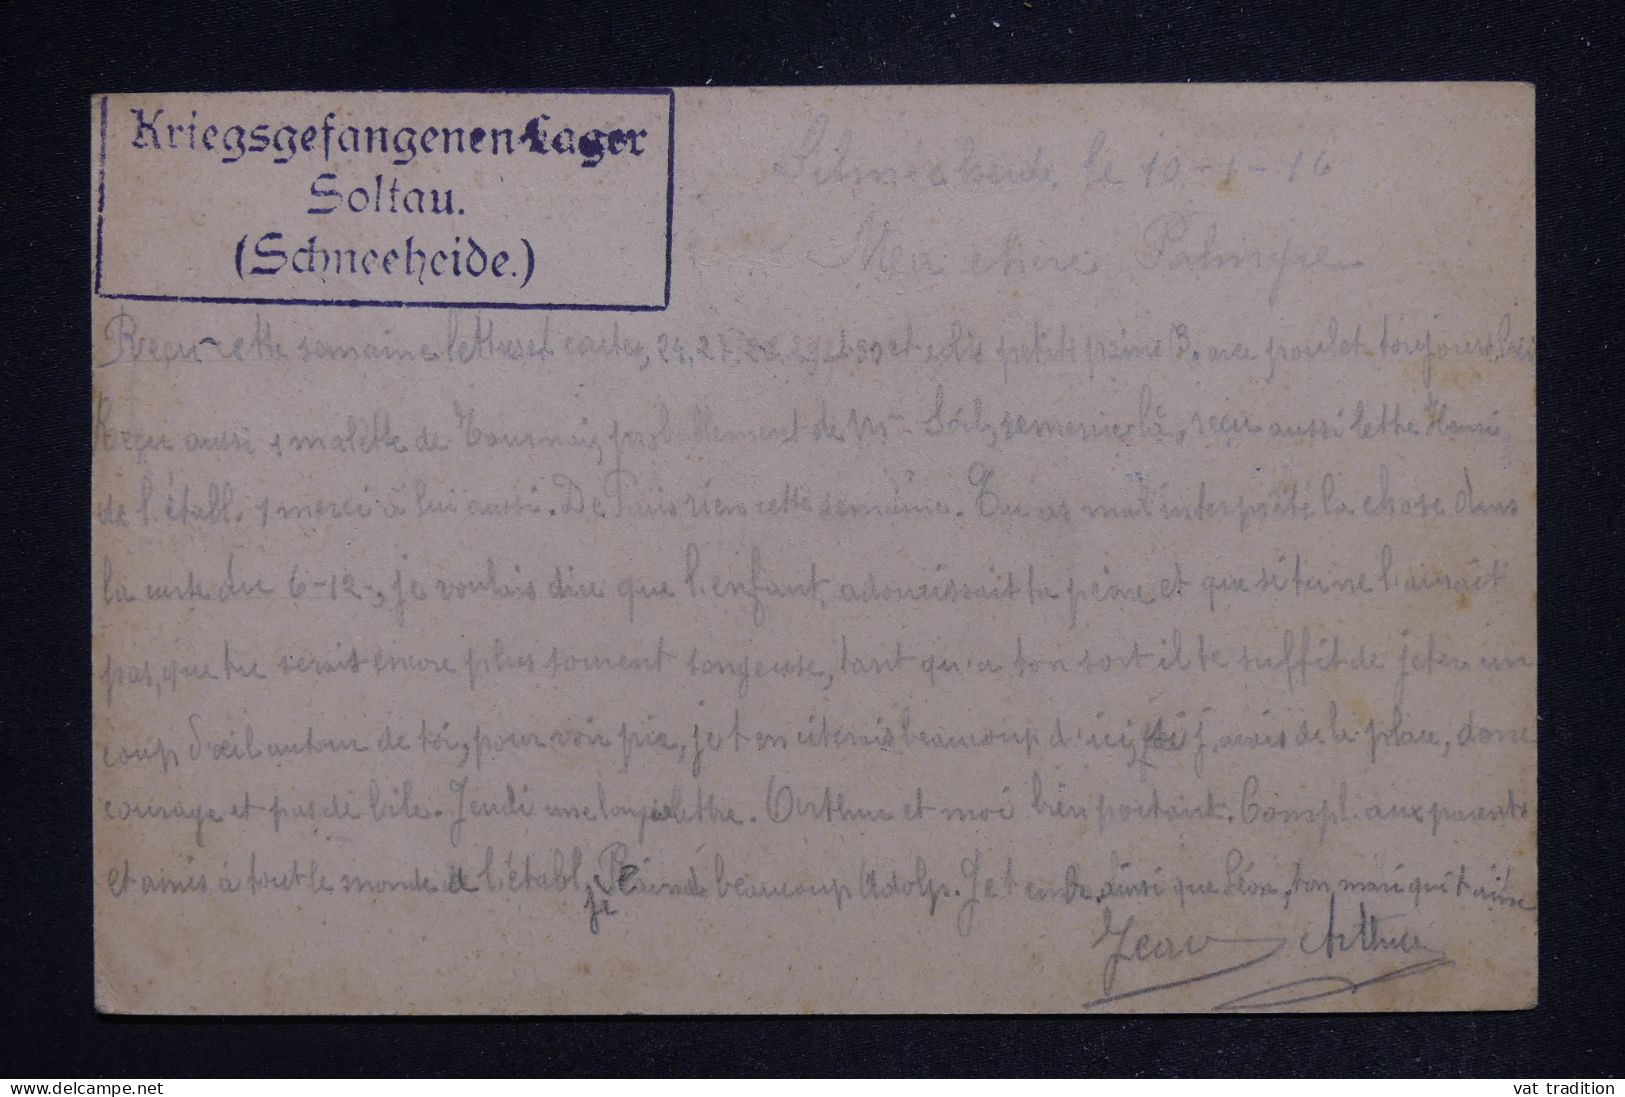 Kriegsgefangenen-Lager
Soltau.
(Schneeheide.)
Schneeheide le 10-1-16
Ma chère Palmyre
Reçu cette semaine lettres et cartes, 24, 27, 28, 29 et 30 et colis petits pains 3, avec poulet toujours
Reçu aussi 1 mallette de Tournai, probablement de Mme remercie là, reçu aussi lettre Henri
de l'établ. 1 merci à lui aussi. De Paris rien cette semaine. Tu as mal interprété la chose dans
la carte du 6-12-, je voulais dire que l'enfant adoucissait ta peine et que si tu ne l'avait
pas, que tu serais encore plus souvent songeuse, tant qu'a ton sort il te suffit de jeter un
coup d'œil autour de toi, pour voir pis, je t'en citerais beaucoup d'ici, si j'avais de la place, donc
courage et pas de bile. Jeudi une longue lettre. Arthur et moi bien portant. Compl. aux parents
et amis à tout le monde de l'établ. je Plains beaucoup Adolp. Je t'emb. ainsi que Léon, ton mari qui t'aime
Jean Arthur
vat tradition
www.delcampe.net